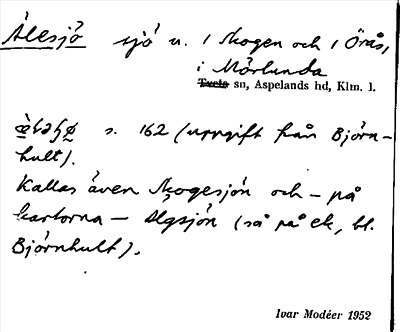 Älesjö sjö n. i Skogen och i Örås,
i Mörlunda
Tveta sn, Aspelands hd, Klm. l.
s. 162 (uppgift från Björn-
hult).
Kallas även Skogesjön och – på
kartorna – Älgsjön (så på ek. bl.
Björnhult).
Ivar Modéer 1952